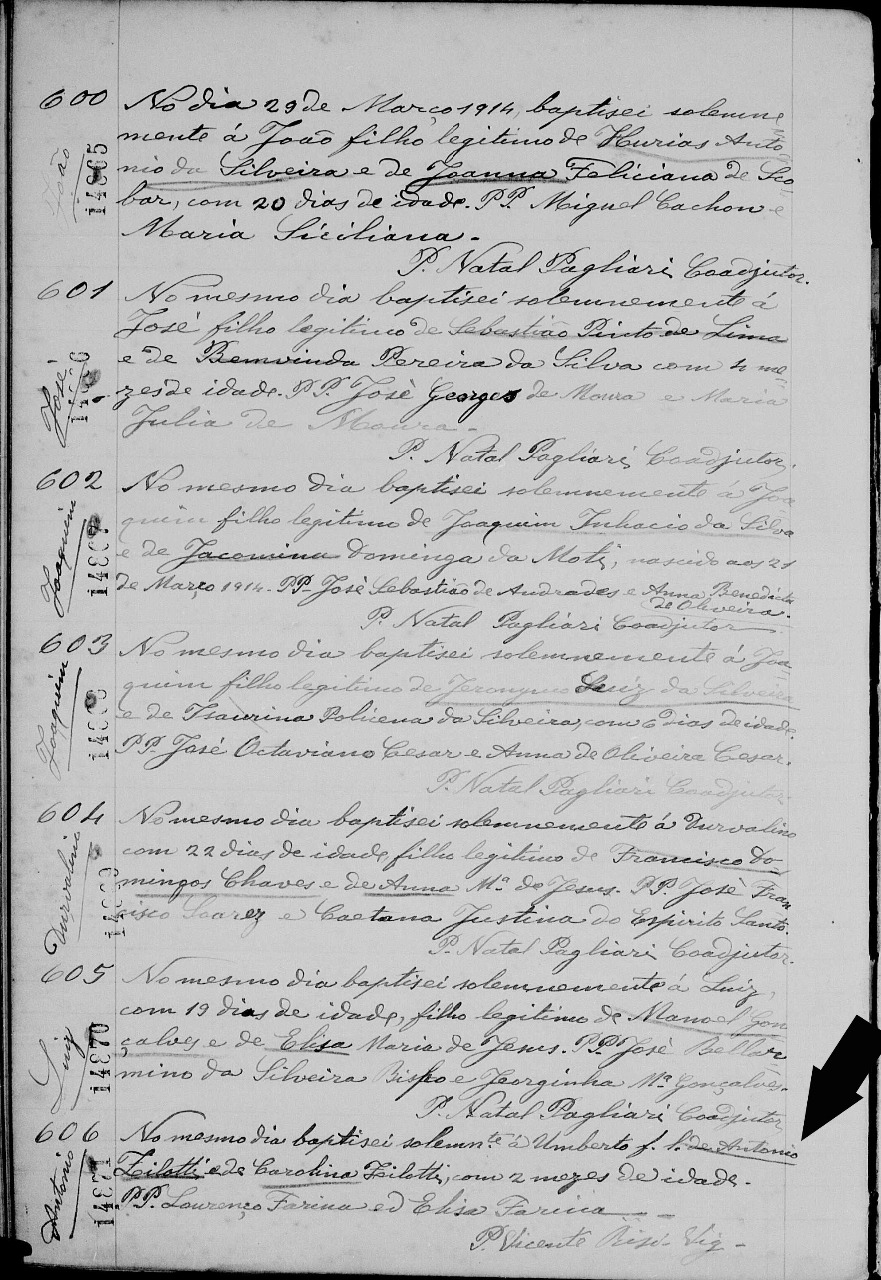 600
João
14865
No dia 29 de Março 1914, baptisei solemne
mente á João filho legitimo de Hurias Anto
nio da Silveira e de Joanna Feliciana de Sco
bar, com 20 dias de idade. P.P. Miguel Cachon e
Maria Siciliana.
P. Natal Pagliari Coadjutor.
601
José
No mesmo dia baptisei solemnemente á
José filho legitimo de Sebastião Pinto de Lima
e de Bemvinda Pereira da Silva com 4 me-
zes de idade. P.P. José Georges de Moura e Maria
Julia de Moura.
P. Natal Pagliari Coadjutor.
602
Joaquim
No mesmo dia baptisei solemnemente á Joa
quim filho legitimo de Joaquim Inhacio da Silva
e de Jacomina Dominga da Moti, nascido aos 21
de Março 1914. P.P. José Sebastião de Andrades e Anna Benedicta
de Oliveira.
P. Natal Pagliari Coadjutor
603
Joaquim
No mesmo dia baptisei solemnemente á Joa
quim filho legitimo de Jeronymo Luiz da Silveira
e de Isaurina Policena da Silveira, com 6 dias de idade.
P.P. José Octaviano Cesar e Anna de Oliveira Cesar.
P. Natal Pagliari Coadjutor
604
Durvalino
No mesmo dia baptisei solemnemente á Durvalino
com 22 dias de idade, filho legitimo de Francisco Do
mingos Chaves e de Anna Mª de Jesus. P.P. José Fran
cisco Soarez e Caetana Justina do Espirito Santo.
P. Natal Pagliari Coadjutor.
605
Luiz
14870
No mesmo dia baptisei solemnemente á Luiz,
com 19 dias de idade, filho legitimo de Manoel Gon
çalves e de Elisa Maria de Jesus. P.P. José Bellar
mino da Silveira Bispo e Jeorginha Mª Gonçalves.
P. Natal Pagliari Coadjutor
606
Antonio
14871
No mesmo dia baptisei solemnte á Umberto f. l. de Antonio
Zilotti e de Carolina Zilotti, com 2 mezes de idade.
P.P. Lourenço Farina ed Elisa Farina
P. Vicente Vig.